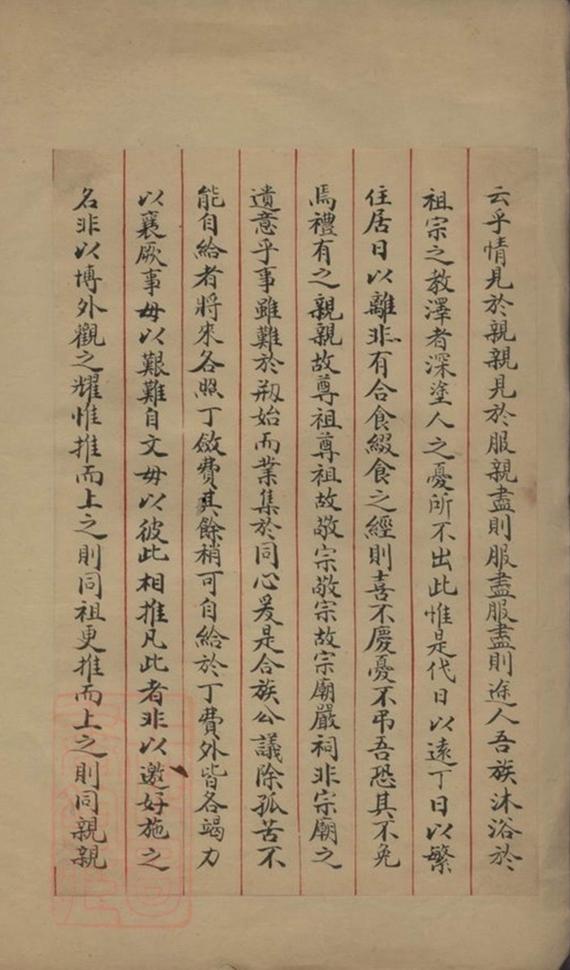 云乎情見於親親見於服親盡則服盡服盡則途人吾族沐浴於
祖宗之教澤者深塗人之憂所不出此惟是代日以遠丁日以繁
住居日以離非有合食綴食之經則喜不慶憂不弔吾恐其不免
焉禮有之親親故尊祖尊祖故敬宗敬宗故宗廟嚴祠非宗廟之
遺意乎事雖難於刱始而業集於同心爰是合族公議除孤苦不
能自給者將來各照丁斂費其餘稍可自給於丁費外皆各竭力
以襄厥事毋以艱難自文毋以彼此相推凡此者非以邀好施之
名非以博外觀之耀惟推而上之則同祖更推而上之則同親親